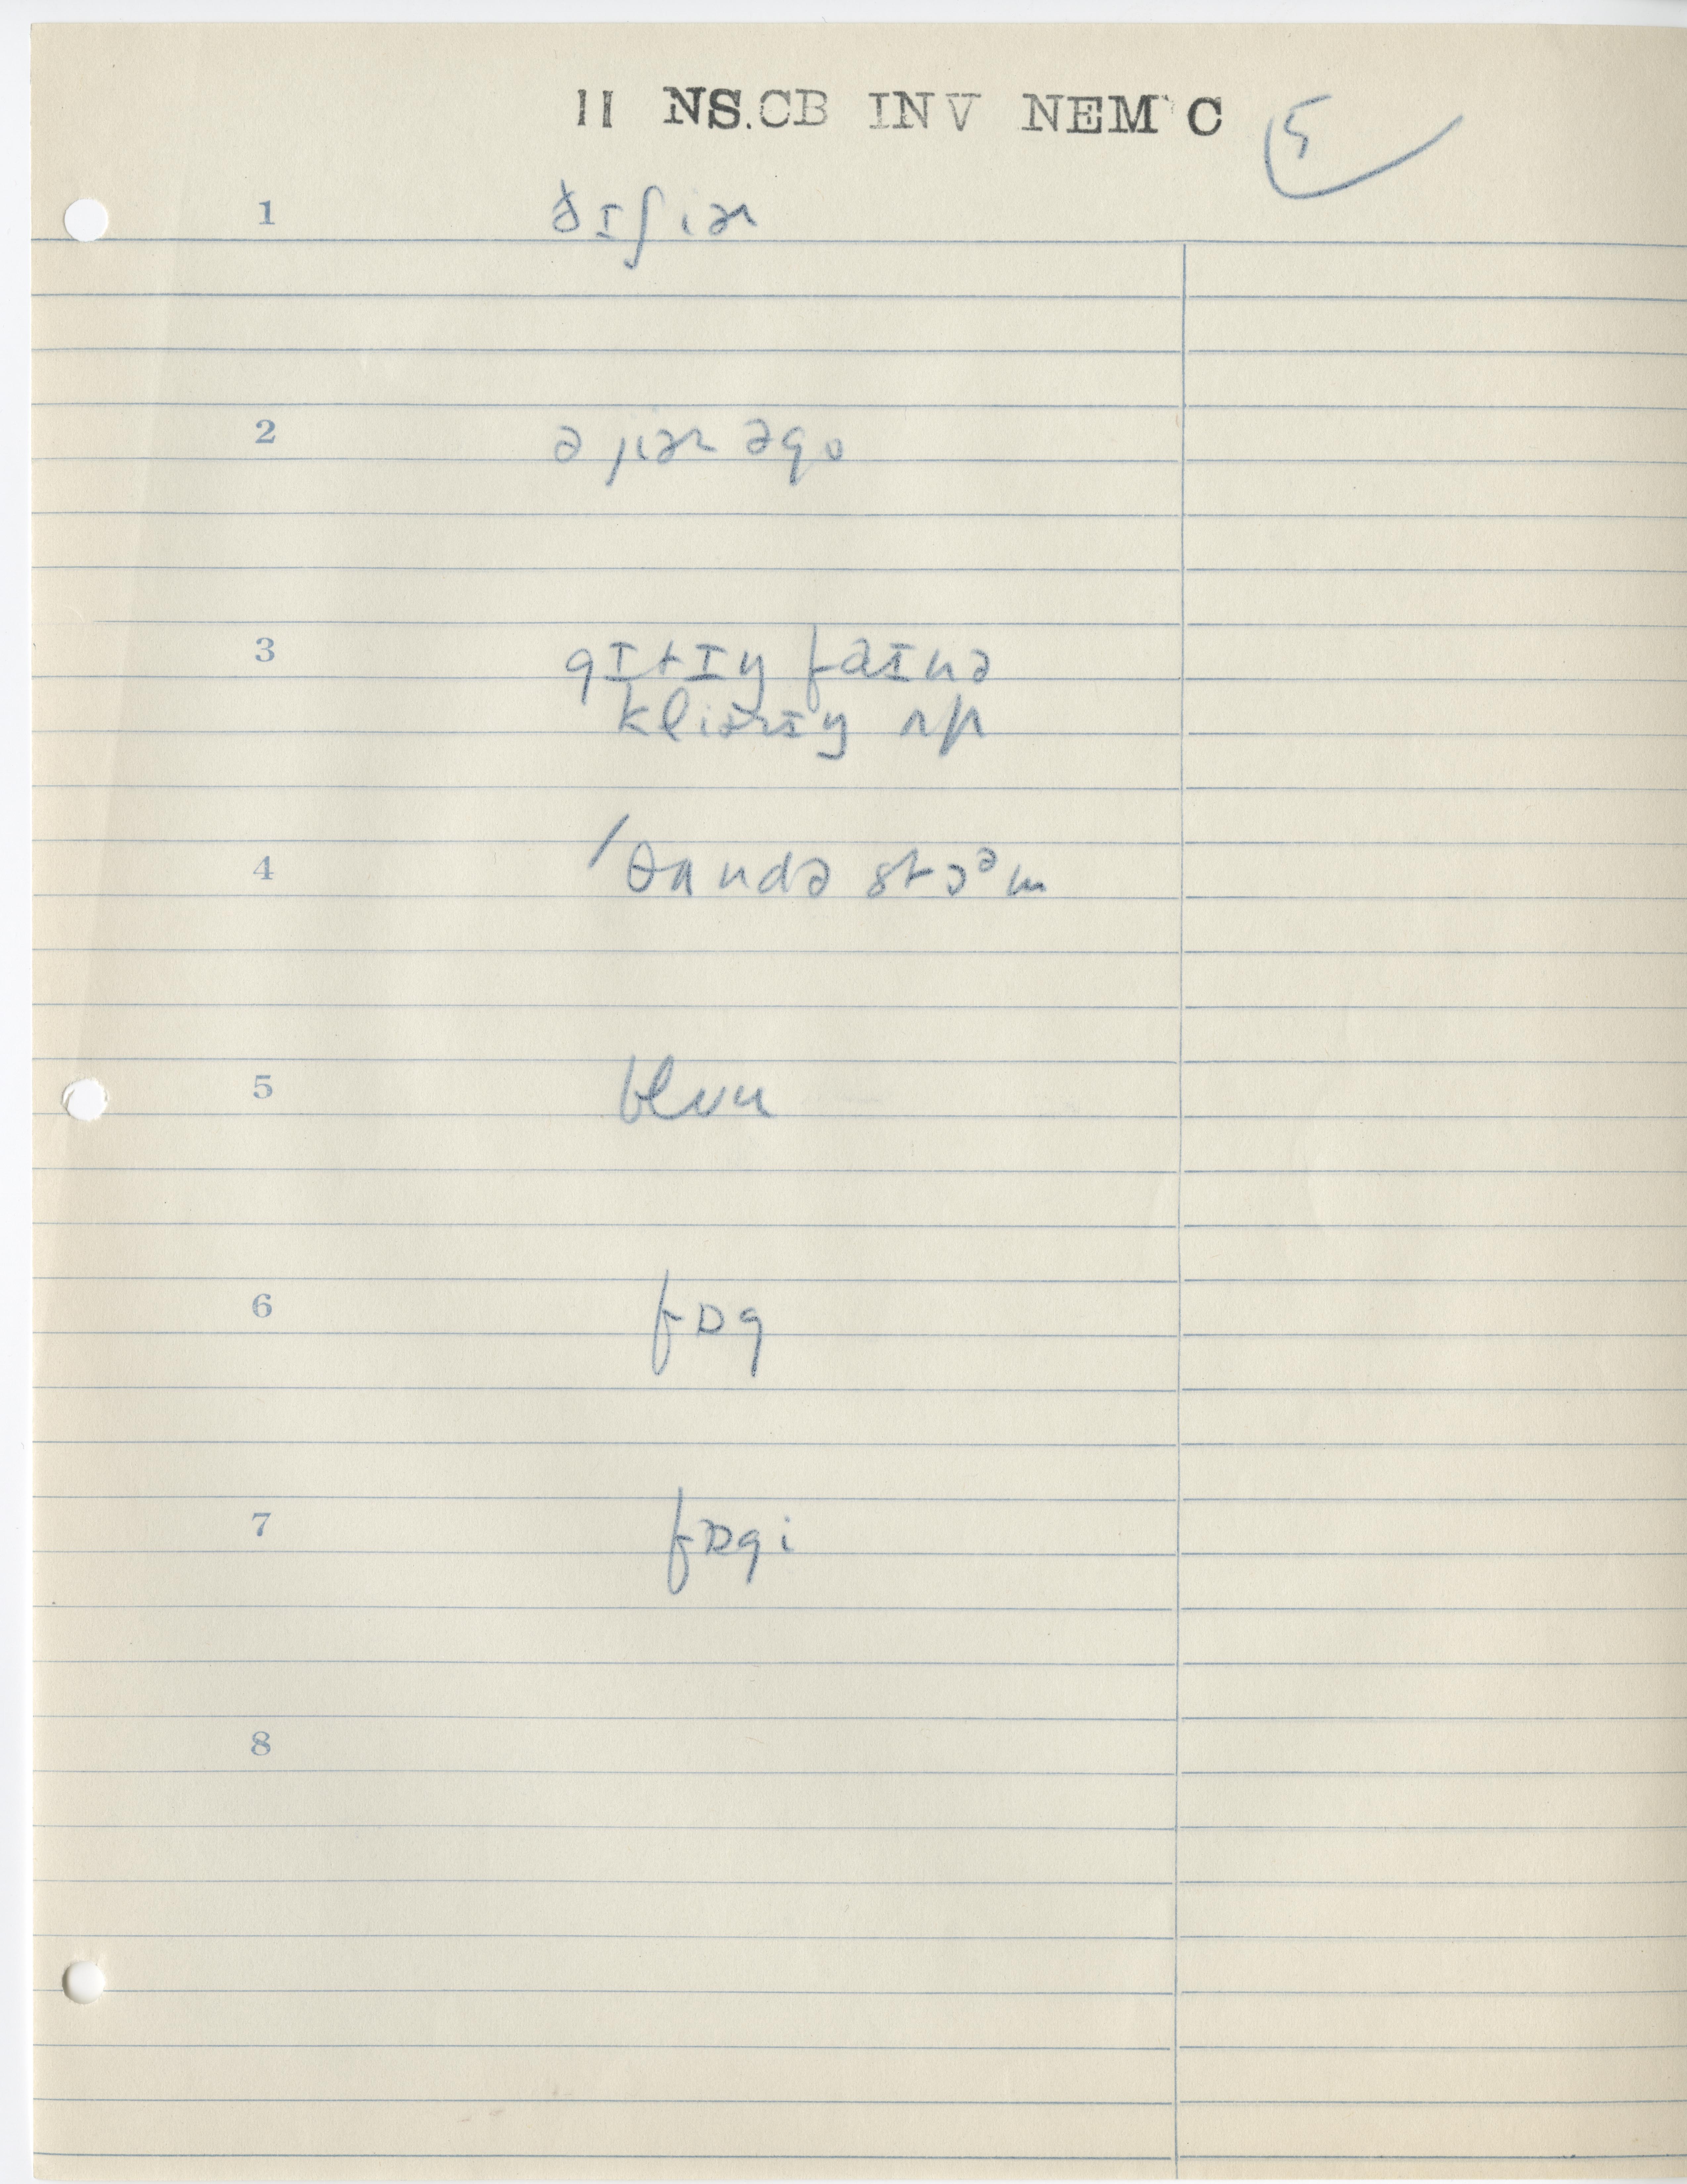 11 NS.CB INV NEM C 5
1 ðɪʃ iər
2 ə jiər əgo
3 gɪtɪŋ faɪnə
kliərɪŋ ʌp
4 ˈθʌndə stɔᵊm
5 bluu
6 fɒg
7 fɒgi
8